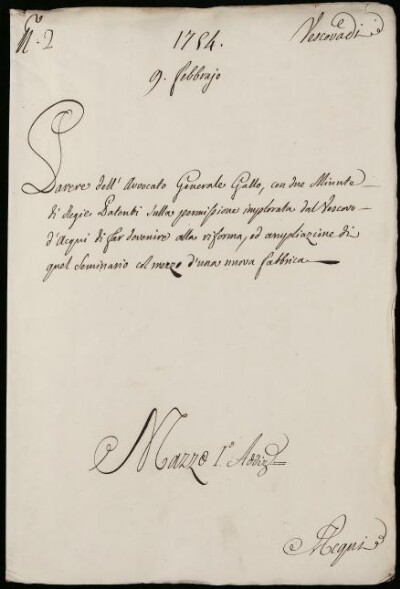 N.º 2
1754.
Vescovadi
9. Febbrajo
Parere dell'Avvocato Generale Gallo, con due Minute
di Regie Patenti sulla permissione implorata dal Vescovo
d'Acqui di far devenire alla riforma, ed ampliazione di
quel Seminario col mezzo d'una nuova fabbrica
Mazzo I.º Addiz.
Acqui